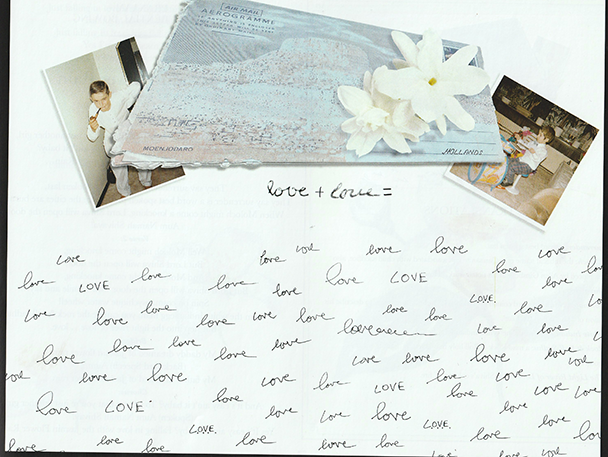 [AIR MAIL]
AEROGRAMME
IF ANYTHING IS ENCLOSED
MOENJODARO
HOLLAND:
love + love =
love love LOVE love love love
love LOVE love love love love LOVE love love
love love love love love love love love LOVE. love love
love love love love love loveeeee love love
love love love love love love love love
love LOVE love LOVE love love love
love LOVE love love love love love LOVE love
LOVE. LOVE. love love love
love love love love love love love love love LOVE